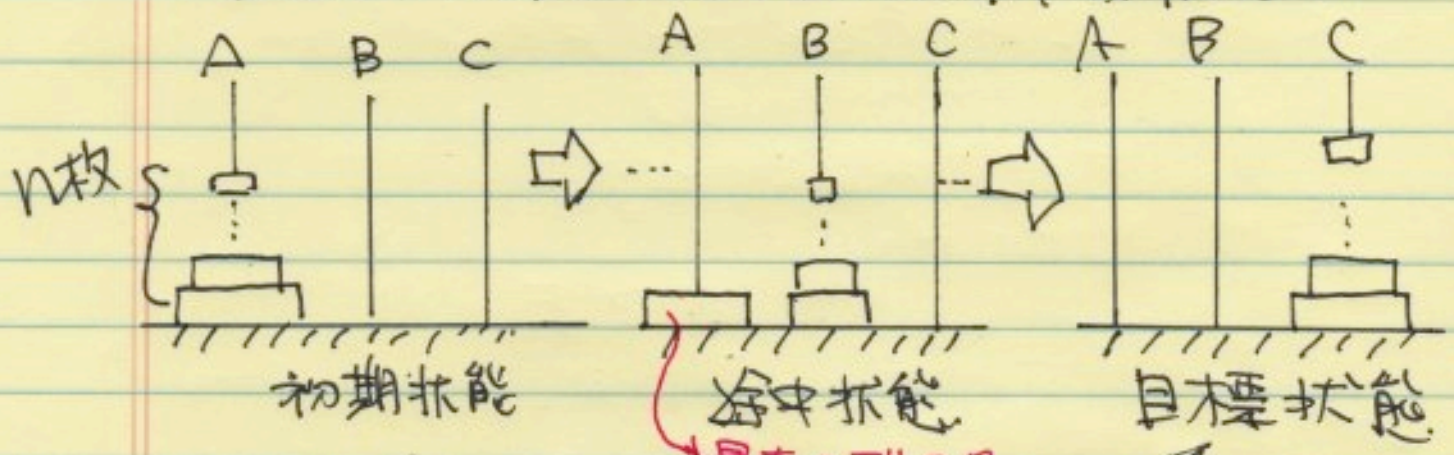 A B C A B C A B C
n枚
初期状態 途中状態 目標状態